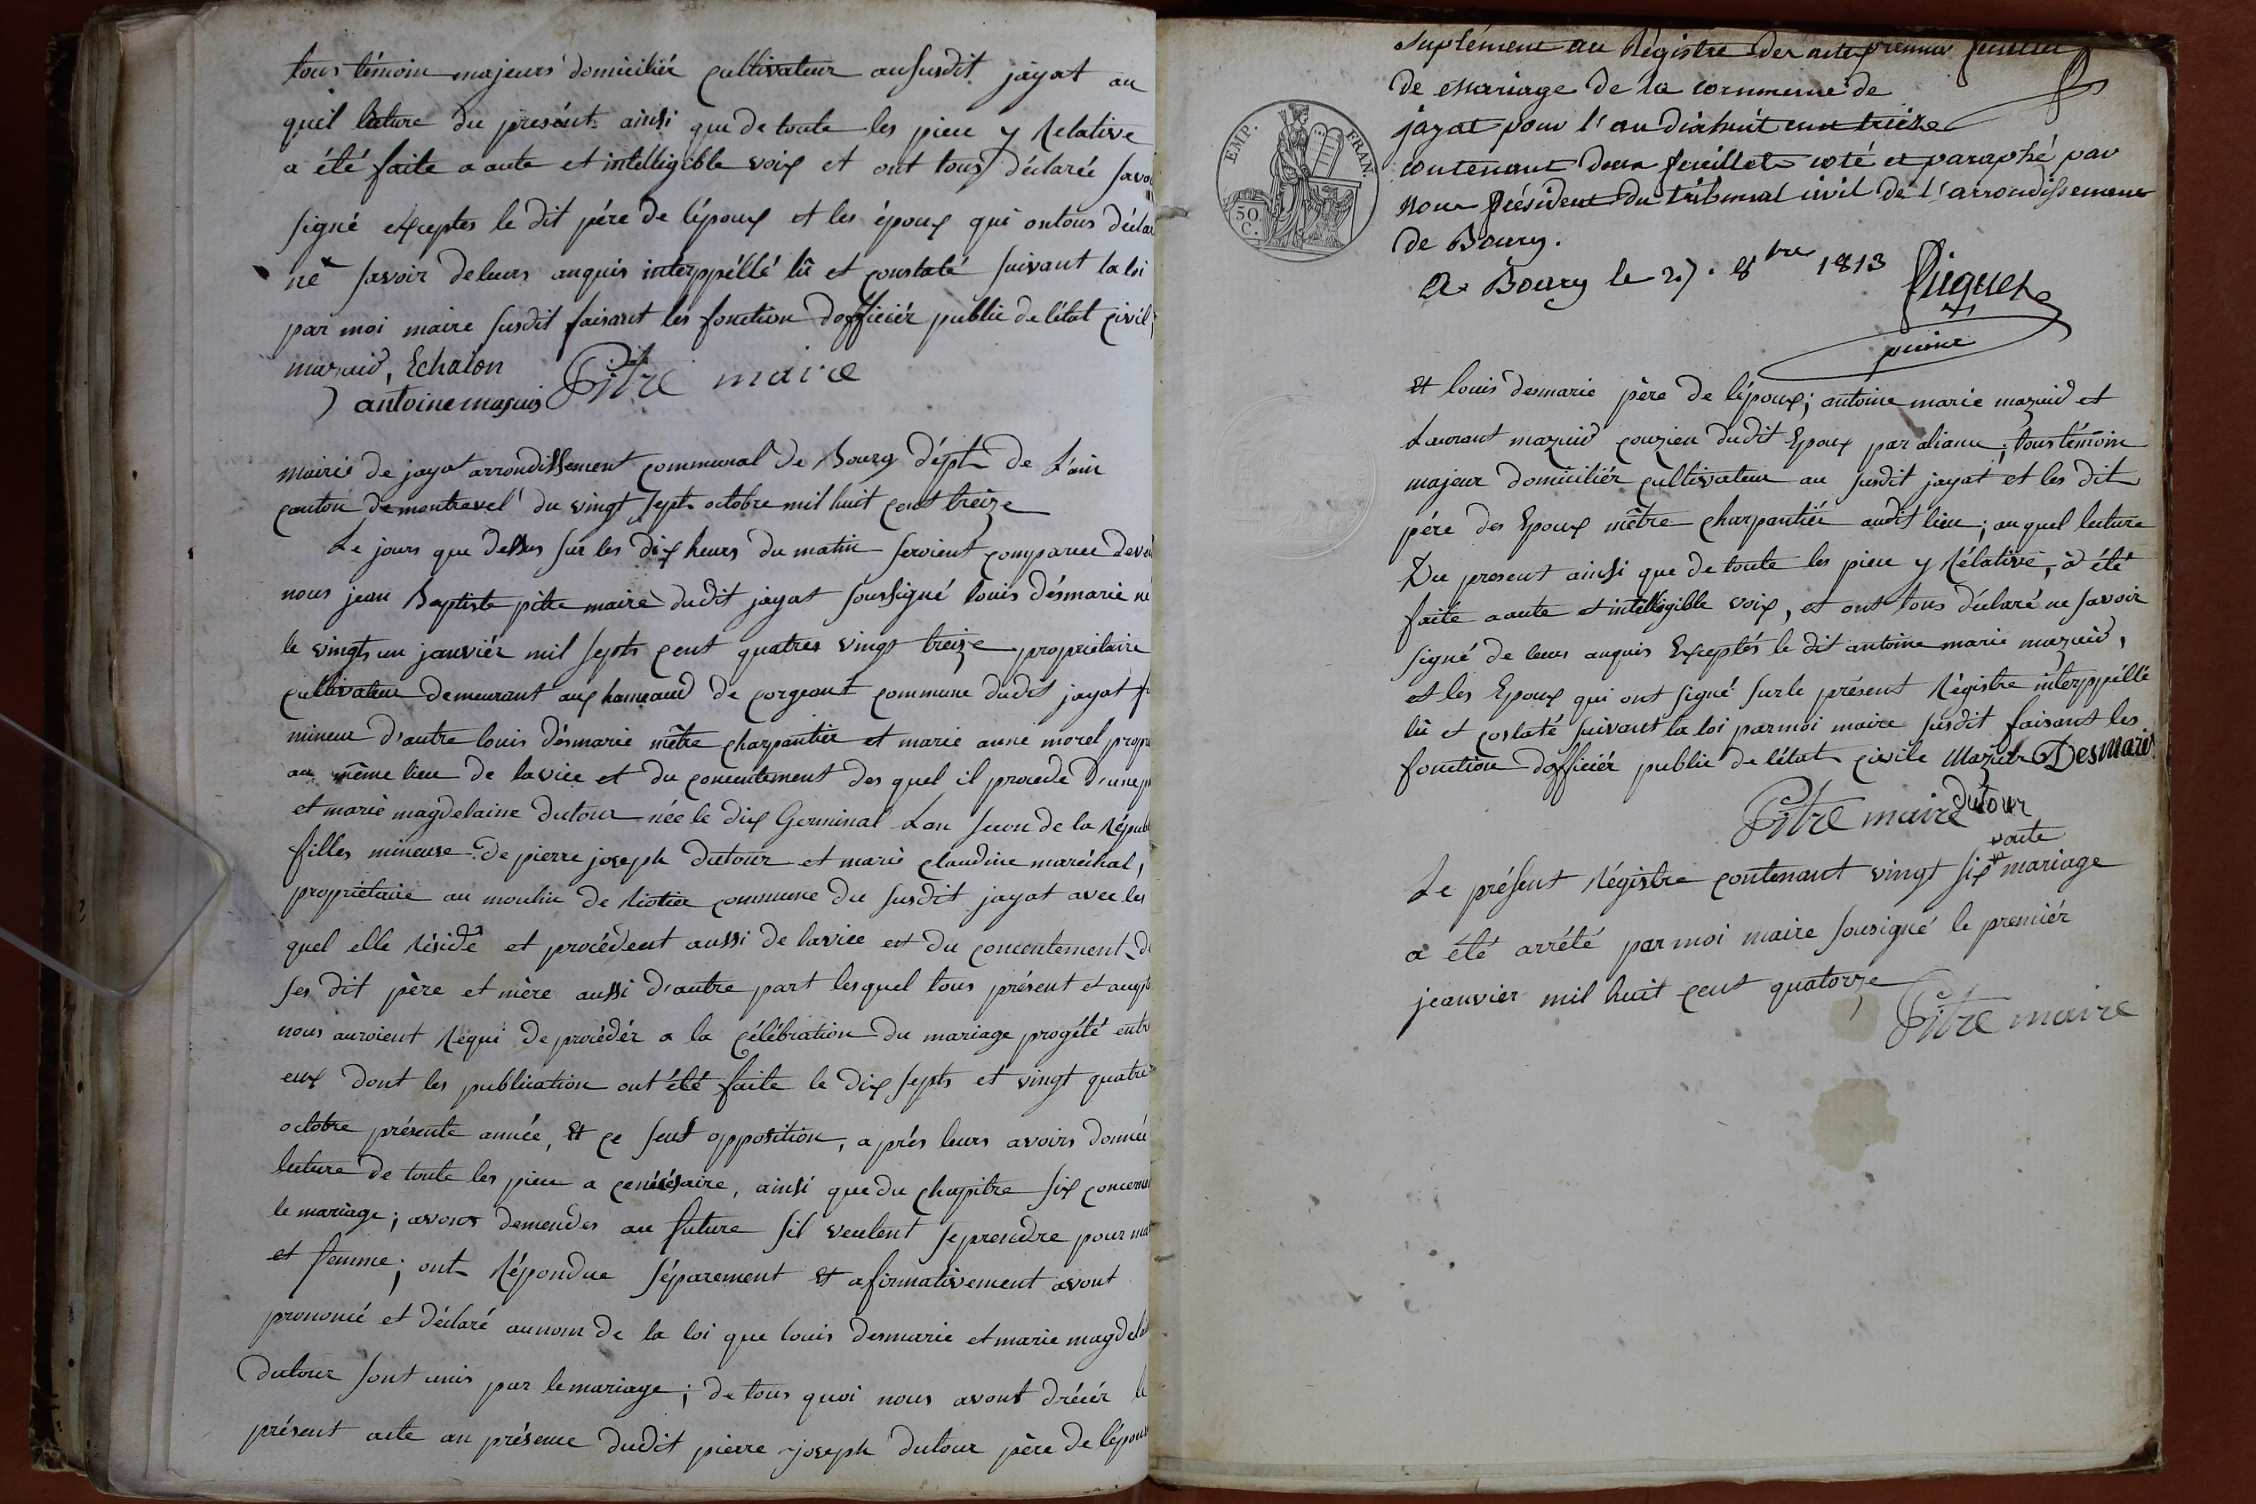 tous témoin majeurs domiciliér cultivateur au susdit jayat au
quel lecture du present ainsi que de toute les piece y Relative
a été faite a aute et intelligible voix et ont tous déclarée savo
signé exceptes le dit pére de l'époux et les époux qui ontous décla
ne savoir de leurs anquis interppéllé lû et constaté suivant la loi
par moi maire susdit faisant les fonction d'officiér public de l'état civil
mazuid, Echalon Pitre maire
antoine mazuis
mairie de jayat arrondissement communal de Bourg dépt de L'ain
canton de montrevel du vingt sept octobre mil huit cent treize
Le jours que dessus sur les dix heurs du matin seroient comparue deva
nous jean Baptiste pitre maire dudit jayat soussigné louis désmarie né
le vingts un janviér mil septs cent quatres vingt treize propriétaire
cultivateur demeurant aux hameaud de corgeant commune dudit jayat f
mineur d'autre louis désmarie mêtre charpantiér et marie anne morel propr
au même lieu de lavice et du concentement des quel il procede d'une p
et marie magdelaine dutour née le dix Germinal Lan secon de la Répub
filles mineuse de pierre joseph dutour et marie claudine maréchal,
propriétaire au moulin de Riotier commune du susdit jayat avec les
quel elle Réside et procédent aussi de lavice et du concentement de
ses dit père et mère aussi d'autre part lesquel tous présent et augi
nous auroient Réqui de procédér a la célébration du mariage progété entre
eux dont les publication ont été faite le dix septs et vingt quatre
octobre présente année, Et ce sent opposition, a prés leurs avoirs donnée
lecture de toute les piece a cenécésaire, ainsi que du chapitre six concerna
le mariage; avons demendes au future sil veulent se prendre pour ma
et femme; ont Répondue séparement Et afirmativement avont
prononcé et déclaré aunom de la loi que louis desmarie et marie magdela
dutour sont unis par le mariage; de tous quoi nous avont drécér le
présent acte an présence dudit pierre joseph dutour père de l'épous
suplément au Régistre des actes premier feuillet
de Mariage de la commune de
jayat pour l'an dixhuit cent treize
contenant deux feuillets coté et paraphé par
nous Président du tribunal civil de l'arrondissement
de Bourg.
EMP. FRAN.
50. C.
A Bourg le 27. 8bre 1813 Piquet
Et louis desmarie père de l'époux; antoine marie mazuid et
Laurant mazuid couzien dudit Epoux par aliance; tous témoin
majeur domiciliér cultivateur au susdit jayat et les dit
pére des Epoux mêtre charpantiér audit lieu; au quel lecture
Du present ainsi que de toute les piece y Rélative, à été
faite aaute et intelligible voix, et ont tous déclaré ne savoir
signé de leurs anquis Exceptés le dit antoine marie mazuid,
et les Epoux qui ont signé sur le présent Régistre interppéllé
lû et costaté suivant la loi par moi maire susdit faisant les
fonction d'officiér public de l'état civile Mazuir Desmaris
dutour
Pitre maire
Le présent Régistre contenant vingt six acte mariage
a été arrété par moi maire sousigné le premiér
jeanvier mil huit cent quatorze
Pitre maire